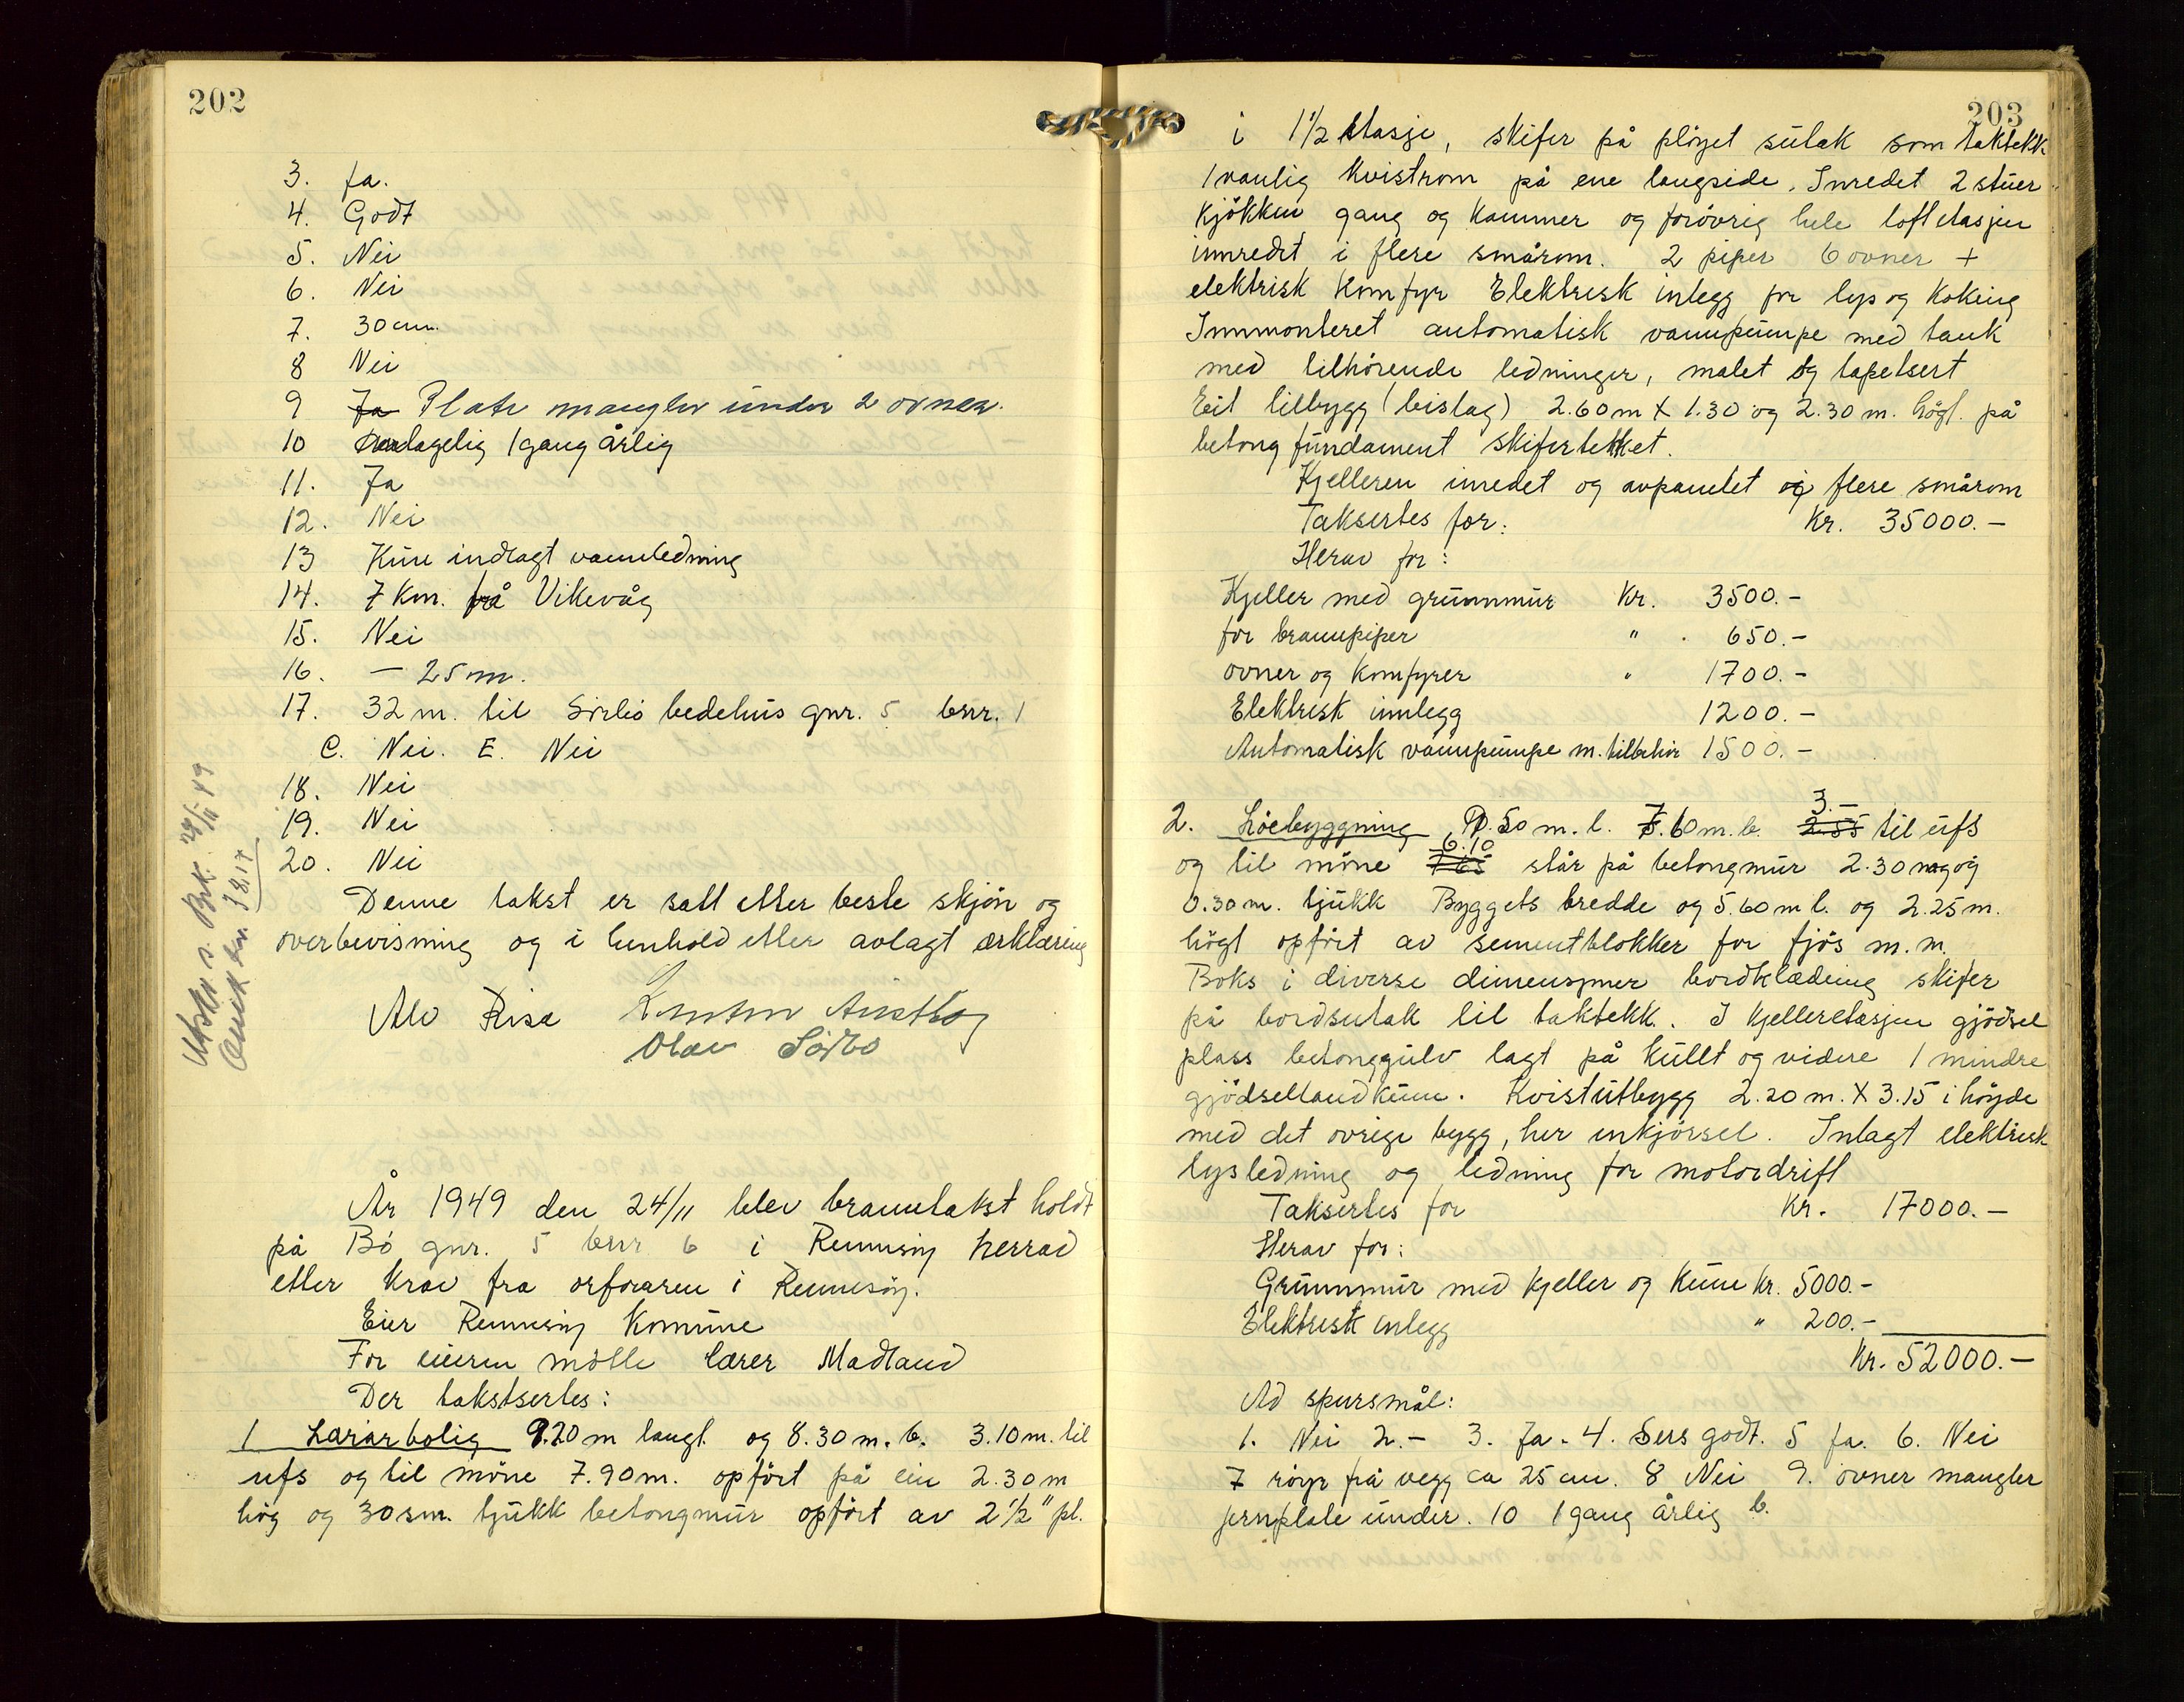 202
3. Ja.
4. Godt
5. Nei
6. Nei
7. 30 cm.
8 Nei
9 Ja Plate mangler under 2 ovner.
10 1 gang årlig
11. Ja
12. Nei
13 Kun indlagt vannledning
14. 7 km. frå Vikevåg
15. Nei
16. — 25 m.
17. 32 m. til Sörbö bedehus gnr. 5 bnr. 1
C. Nei. E. Nei
18. Nei
19. Nei
20. Nei
Denne takst er satt etter beste skjön og
overbevisning og i henhold etter avlagt erklæring
Alv Risa
Olav Sörbö
Utskr. s. Brk. 24/11 49
3817
År 1949 den 24/11 blev branntakst holdt
på Bö gnr. 5 bnr 6 i Rennesöy herrad
etter krav fra orföraren i Rennesöy.
Eier Rennesöy Komune
For eieren mötte lærer Madland
Der takstsertes:
1 Lærarbolig 9.20 m langt og 8.30 m. b. 3.10 m. til
ufs og til möne 7.90 m. opfört på ein 2.30 m
hög og 30 sm. tjukk betongmur opfört av 2 1/2" pl.
203
i 1 1/2 etasje, skifer på plöyet sutak som taktekk
1 vanlig kvistrom på ene langside. Inredet 2 stuer
kjökken gang og kammer og forövrig hele loftetasjen
innredet i flere smårom. 2 piper 6 ovner +
elektrisk komfyr Elektrisk inlegg for lys og koking
Innmonteret automatisk vannpumpe med tank
med tilhörende ledninger, malet og tapetsert
Eit tilbygg (bislag) 2.60 m x 1.30 og 2.30 m. högt. på
betong fundament skifertekket.
Kjelleren inredet og avpanelet i flere smårom
Taksertes for: Kr. 35000.-
Herav for:
Kjeller med grunnmur Kr. 3500.-
for brannpiper " 650.-
ovner og komfyrer " 1700.-
Elektrisk innlegg 1200.-
Automatisk vannpumpe m. tilbehör 1500.-
3.-
2. Löebyggning, 50 m. l. 7.60 m. b. 2.55 til ufs
6.10
og til möne 7.65 står på betongmur 2.30 m og
0.30 m. tjukk Byggets bredde og 5.60 m l. og 2.25 m.
högt opfört av sementblokker for fjös m. m.
Boks i diverse dimensjoner bordklædning skifer
på bordsutak til taktekk. I kjelleretasjen gjödsel
plass betonggulv lagt på kullt og videre 1 mindre
gjödsellandkum. Kvistutbygg 2.20 m. x 3.15 i höyde
med det ovrige bygg, her inkjörsel. Inlagt elektrisk
lysledning og ledning for motordrift
Taksertes for Kr. 17000.-
Herav for:
Grunnmur med kjeller og kum Kr. 5000.-
Elektrisk inlegg " 200.-
Kr. 52000.-
Ad spursmål:
1. Nei 2.- 3. Ja. 4. Sers godt. 5 Ja. 6. Nei
7 röyr frå vegg ca 25 cm. 8 Nei 9. ovner mangler
jernplate under. 10 1 gang årlig b.